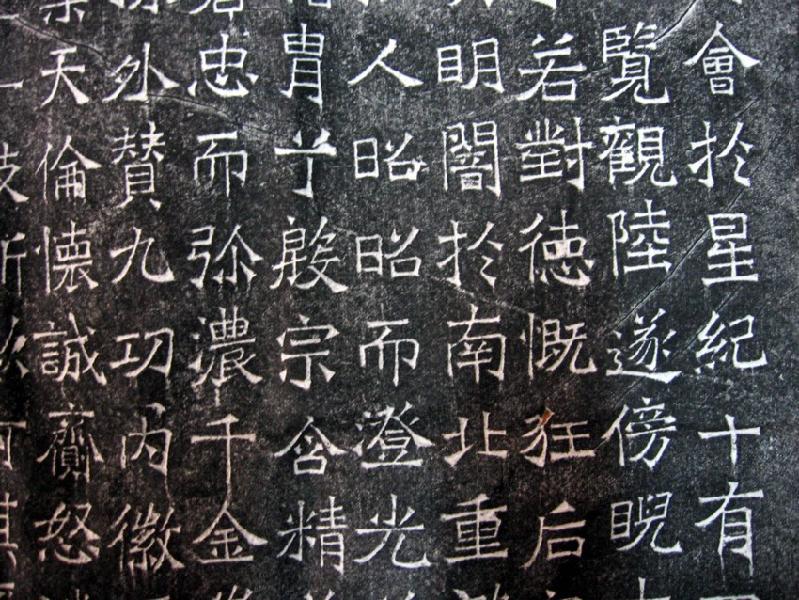 會於星紀十有
覽觀陸遂傍睨
若對德慨狂后
明闇於南北重
人昭昭而澄光
胄子殷宗含精
忠而弥濃千金
外贊九功內徽
天倫懷誠齊怒